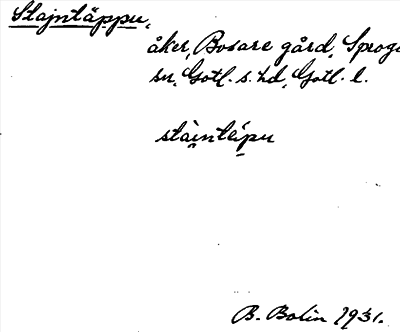 Stajntäppu,
åker, Bosare gård, Sproge
sn, Gotl. s. hd, Gotl. l.
stàintèpu
B. Bolin 1931.